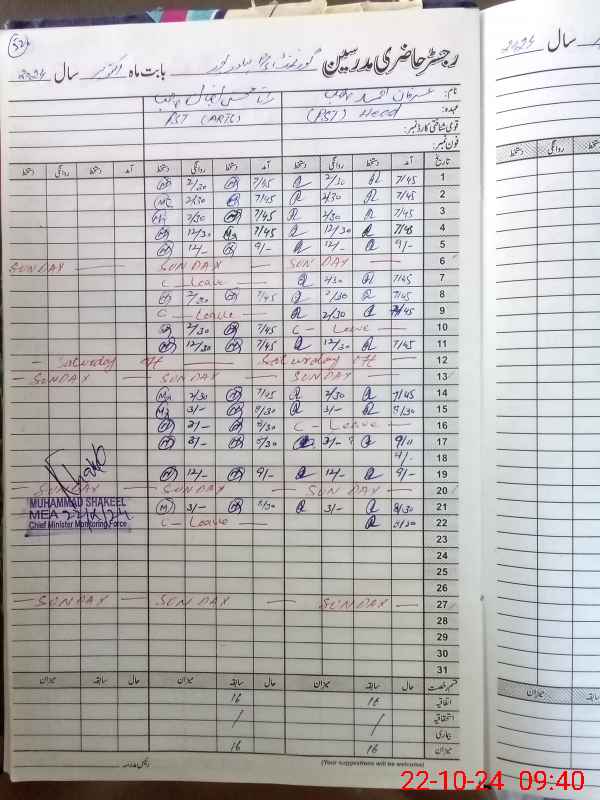 52
رجسٹر حاضری مدرسین گورنمنٹ بابت ماہ اکتوبر سال 2024
2024 سال
نام:
عہدہ: (PST) Head PST (ARTS)
قومی شناختی کارڈ نمبر:
فون نمبر:
تاریخ آمد دستخط روانگی دستخط آمد دستخط روانگی دستخط دستخط روانگی دستخط
1 7/45 2/30 7/45 2/30
2 7/45 2/30 7/45 2/30
3 7/45 2/30 7/45 2/30
4 7/45 12/30 7/45 12/30
5 9/- 12/- 9/- 12/-
SUNDAY — SUNDAY — SUNDAY — 6
C - Leave - 2/30 7/45 7
2/30 7/45 2/30 7/45 8
C - Leave - 2/30 7/45 9
2/30 7/45 C - Leave - 10
12/30 7/45 12/30 7/45 11
- Saturday off — Saturday off — 12
— SUNDAY — SUNDAY — SUNDAY 13
2/30 7/45 2/30 7/45 14
3/- 8/30 3/- 8/30 15
3/- 8/30 C - Leave — 16
3/- 8/30 3/- 17
9/- 18
12/- 9/- 12/- 9/- 19
— SUNDAY — SUNDAY — SUNDAY — 20
3/- 8/30 3/- 8/30 21
C - Leave — 8/30 22
MUHAMMAD SHAKEEL
MEA 22/10/24
Chief Minister Monitoring Force
23
24
25
26
— SUNDAY — SUNDAY — SUNDAY — 27
28
29
30
31
قسم رخصت حال سابقہ میزان حال سابقہ میزان حال سابقہ میزان
اتفاقیہ 16 16
استحقاقیہ / /
بیماری
میزان 16 16
(Your suggestions will be welcomed)
رئیس مدرسہ
22-10-24 09:40